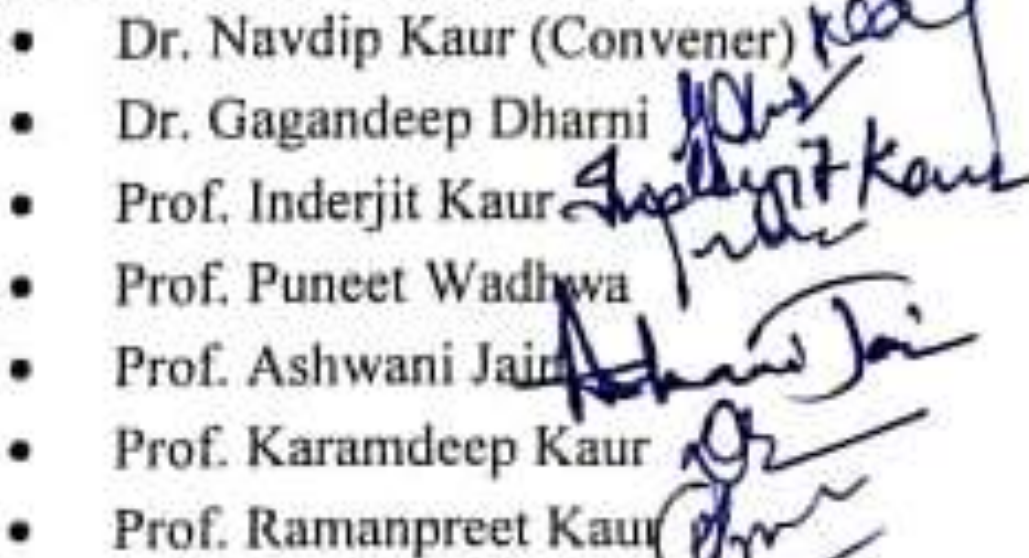 • Dr. Navdip Kaur (Convener)
• Dr. Gagandeep Dharni
• Prof. Inderjit Kaur Kaur
• Prof. Puneet Wadhwa
• Prof. Ashwani Jain Ashwani Jain
• Prof. Karamdeep Kaur
• Prof. Ramanpreet Kaur